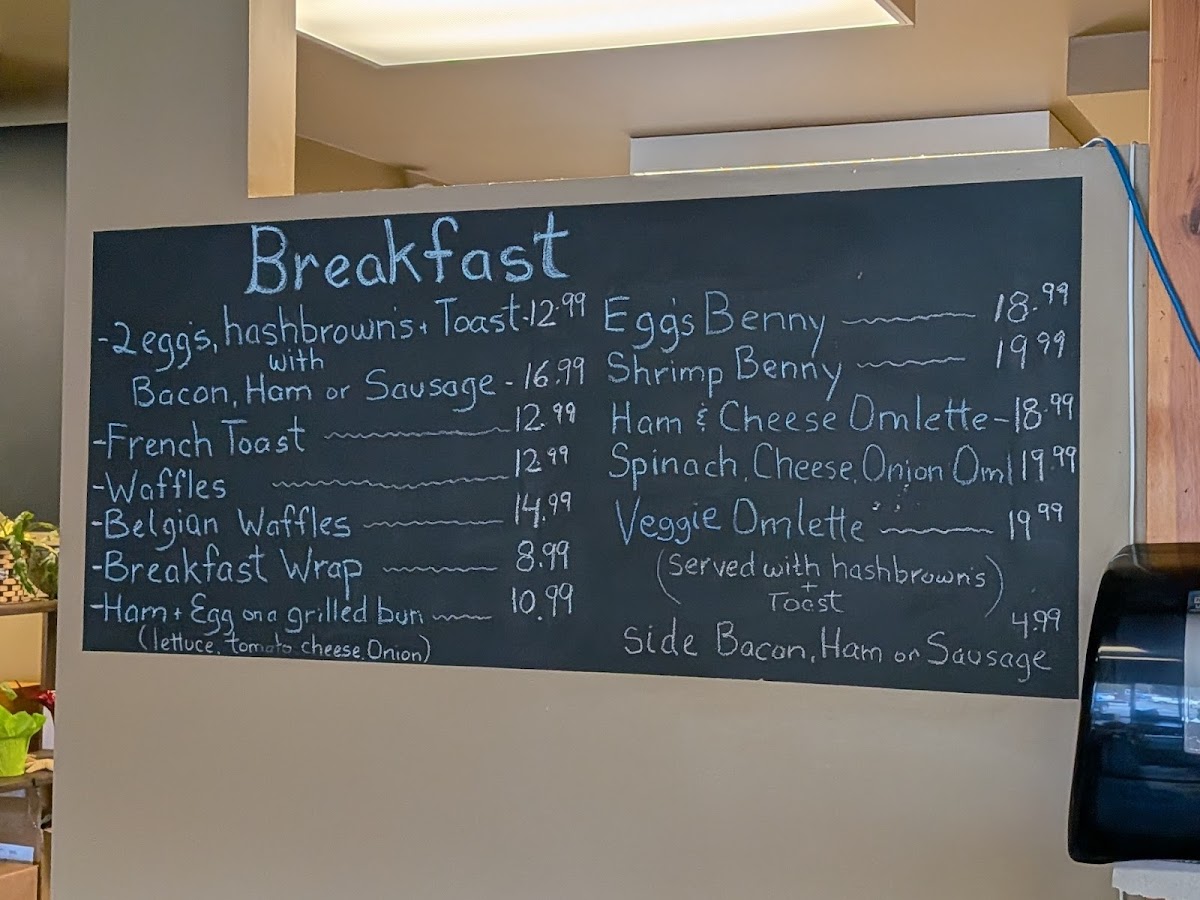 Breakfast
-2 egg's, hashbrown's + Toast-12.99
with
Bacon, Ham or Sausage - 16.99
-French Toast 12.99
-Waffles 12.99
-Belgian Waffles 14.99
-Breakfast Wrap 8.99
-Ham + Egg on a grilled bun 10.99
(lettuce, tomato, cheese, Onion)
Egg's Benny 18.99
Shrimp Benny 19.99
Ham & Cheese Omlette-18.99
Spinach, Cheese, Onion Oml 19.99
Veggie Omlette 19.99
(served with hashbrown's
+
Toast)
4.99
side Bacon, Ham or Sausage